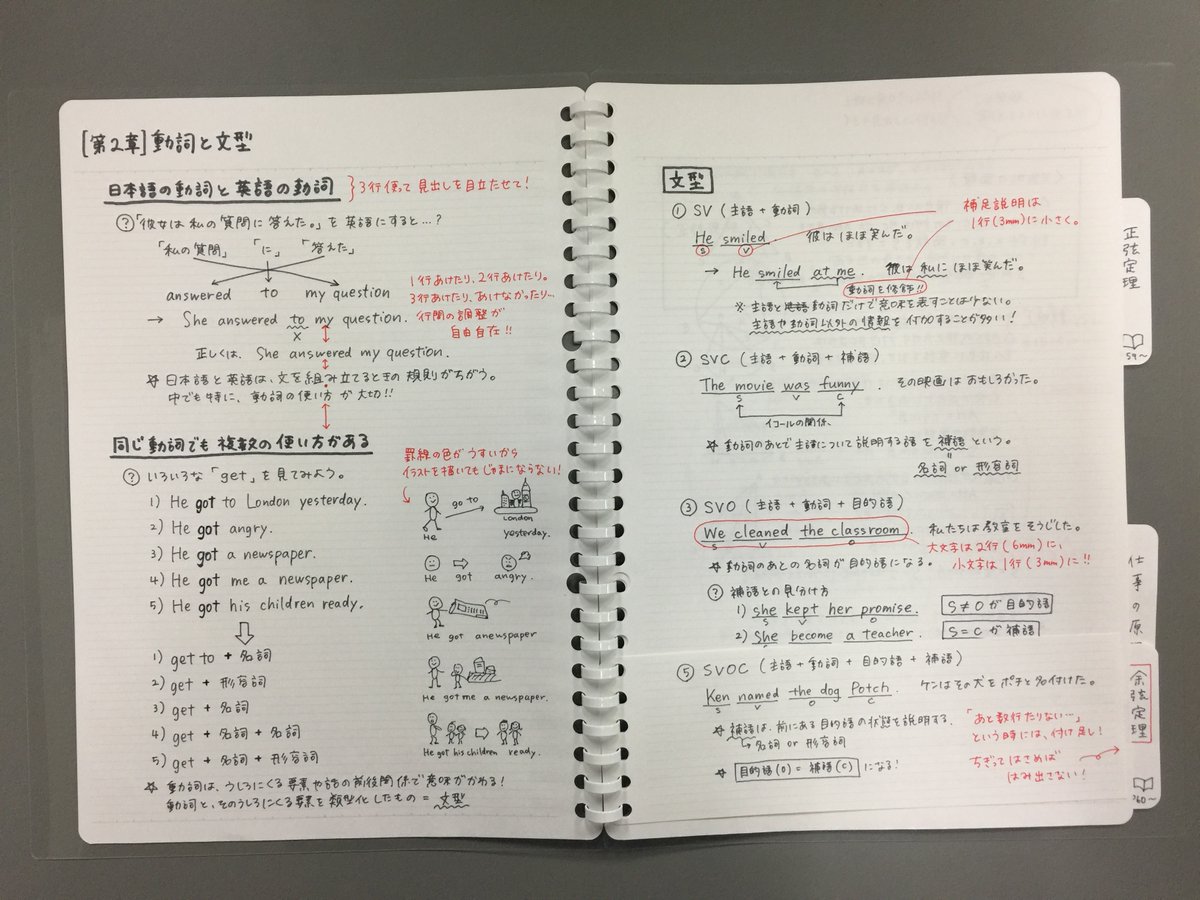 [第2章]動詞と文型
日本語の動詞と英語の動詞
3行使って見出しを目立たせて!
?「彼女は私の質問に答えた。」を英語にすると…?
「私の質問」 「に」 「答えた」
answered to my question
→ She answered to my question.
×
正しくは、She answered my question.
1行あけたり、2行あけたり。
3行あけたり、あけなかったり…
行間の調整が
自由自在!!
☆ 日本語と英語は、文を組み立てるときの規則がちがう。
中でも特に、動詞の使い方が大切!!
同じ動詞でも複数の使い方がある
? いろいろな「get」を見てみよう。
1) He got to London yesterday.
2) He got angry.
3) He got a newspaper.
4) He got me a newspaper.
5) He got his children ready.
1) get to + 名詞
2) get + 形容詞
3) get + 名詞
4) get + 名詞 + 名詞
5) get + 名詞 + 形容詞
☆ 動詞は、うしろにくる要素や語の前後関係で意味がかわる!
動詞と、そのうしろにくる要素を類型化したもの = 文型
罫線の色がうすいから
イラストを描いてもじゃまにならない!
go to
He London
yesterday.
He got angry.
He got anewspaper
He got me a newspaper.
He got his children ready.
文型
① SV (主語 + 動詞)
補足説明は
1行(3mm)に小さく。
He smiled. 彼はほほ笑んだ。
S V
→ He smiled at me. 彼は私にほほ笑んだ。
動詞を修飾!!
※ 主語と動詞だけで意味を表すことは少ない。
主語や動詞以外の情報を付加することが多い!
② SVC (主語 + 動詞 + 補語)
The movie was funny. その映画はおもしろかった。
S V C
イコールの関係
☆ 動詞のあとで主語について説明する語を補語という。
名詞 or 形容詞
③ SVO (主語 + 動詞 + 目的語)
We cleaned the classroom. 私たちは教室をそうじした。
S V O
大文字は2行(6mm)に、
小文字は1行(3mm)に!!
☆ 動詞のあとの名詞が目的語になる。
? 補語との見分け方
1) she kept her promise. S≠Oが目的語
S V O
2) She become a teacher. S=Cが補語
⑤ SVOC (主語 + 動詞 + 目的語 + 補語)
Ken named the dog Potch. ケンはその犬をポチと名付けた。
S V O C
☆ 補語は、前にある目的語の状態を説明する。
名詞 or 形容詞
☆ 目的語(O) = 補語(C) になる!
「あと数行たりない…」
という時には、付け足し!
ちぎってはさめば
はみ出さない!
正弦定理
59〜
仕事の原
余弦定理
P60〜